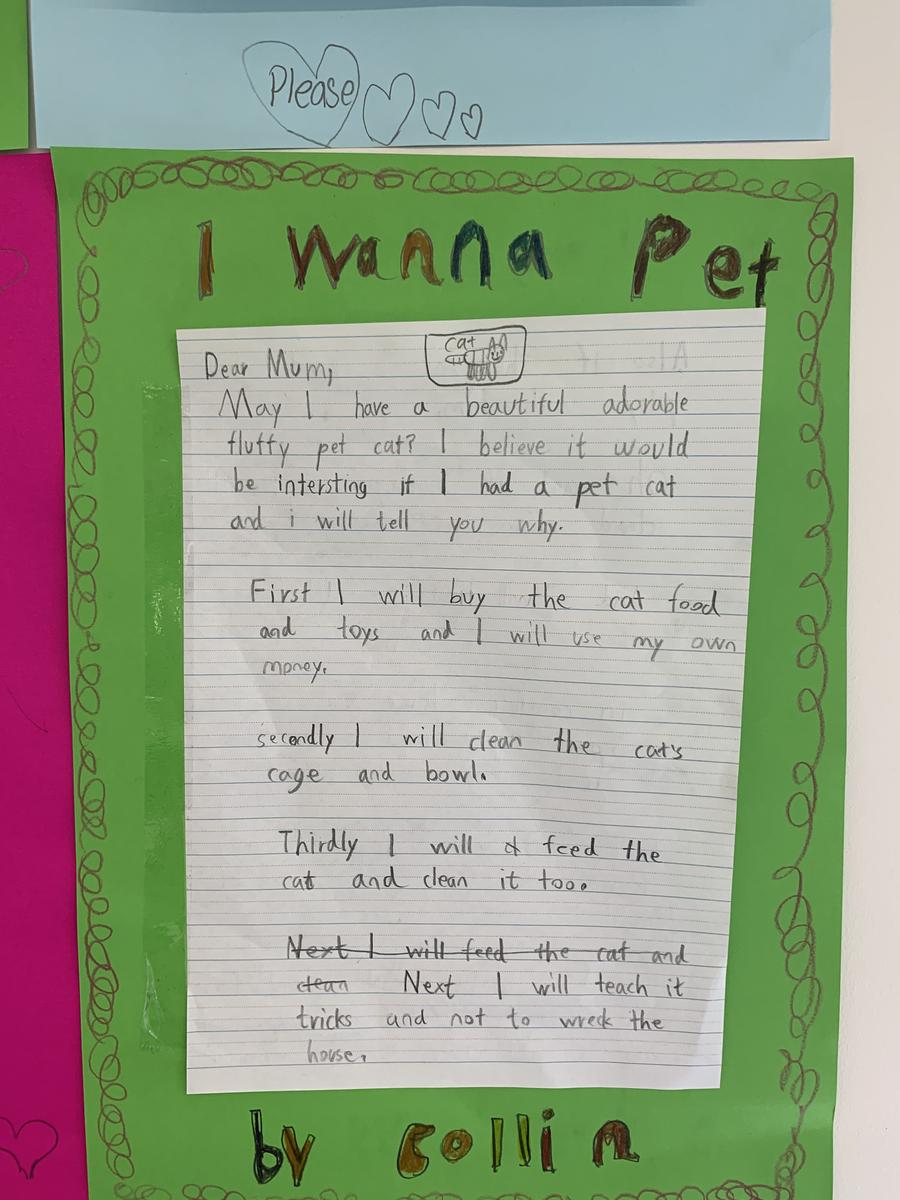 Please
I wanna Pet
cat
Dear Mum,
May I have a beautiful adorable
fluffy pet cat? I believe it would
be intersting if I had a pet cat
and i will tell you why.
First I will buy the cat food
and toys and I will use my own
money.
secondly I will clean the cat's
cage and bowl.
Thirdly I will feed the
cat and clean it too.
Next I will feed the cat and
clean Next I will teach it
tricks and not to wreck the
house.
by collin